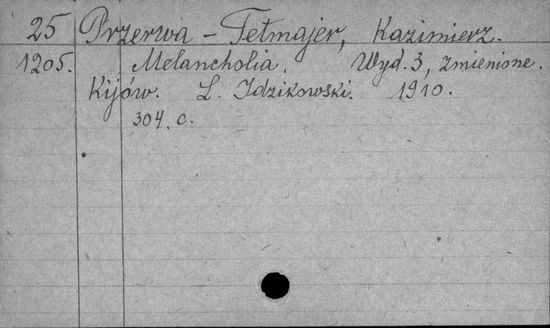 25 Przerwa-Tetmajer, Kazimierz.
1205. Melancholia. Wyd. 3, zmienione.
Kijów. L. Idzikowski. 1910.
304. c.